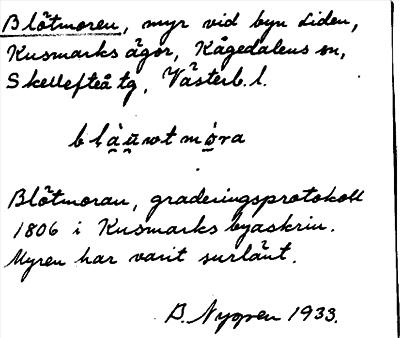 Blötmoren, myr vid byn Liden,
Kusmarks ägor, Kågedalens sn,
Skellefteå tg, Västerb. l.
blạ̀ụ̄wtmọ́ra
Blötmoran, graderingsprotokoll
1806 i Kusmarks byaskrin.
Myren har varit surlänt.
B. Nygren 1933.